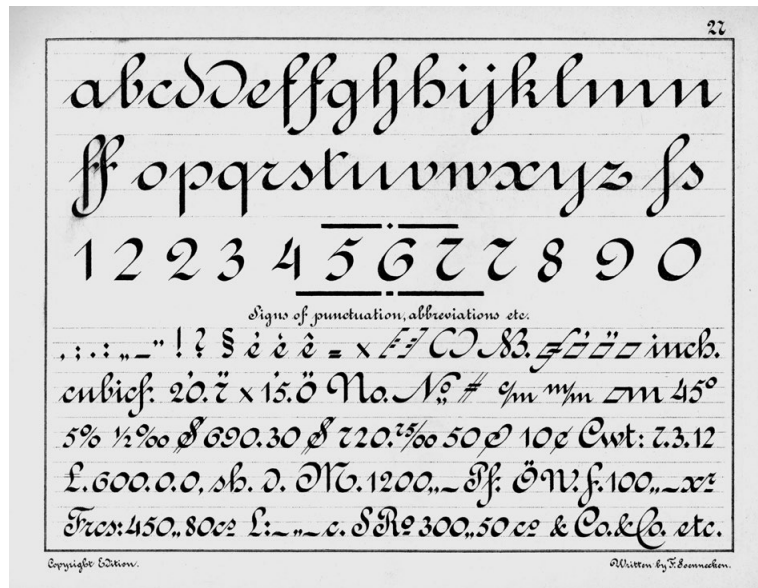 27
abcddeffghhijklmn
ff opqrstuvwxyz fs
1 2 2 3 4 5 6 7 7 8 9 0
Signs of punctuation, abbreviations etc.
. ; : . : „ _ " ! ? § ė è ê = x CO NB. inch.
cubicf. 20.7 x 15.0 No. No # c/m m/m m 45º
5% ½‰ $ 690.30 $ 720.75/00 50 10¢ Cwt: 7.3.12
L.600.0.0, sh. d. M.1200„_ Pf. ÖW.f.100„_xr
Frcs:450„80cs L:_„_c. SRº 300„50cº & Co.&Co. etc.
Copyright Edition.
Written by F. Soennecken.